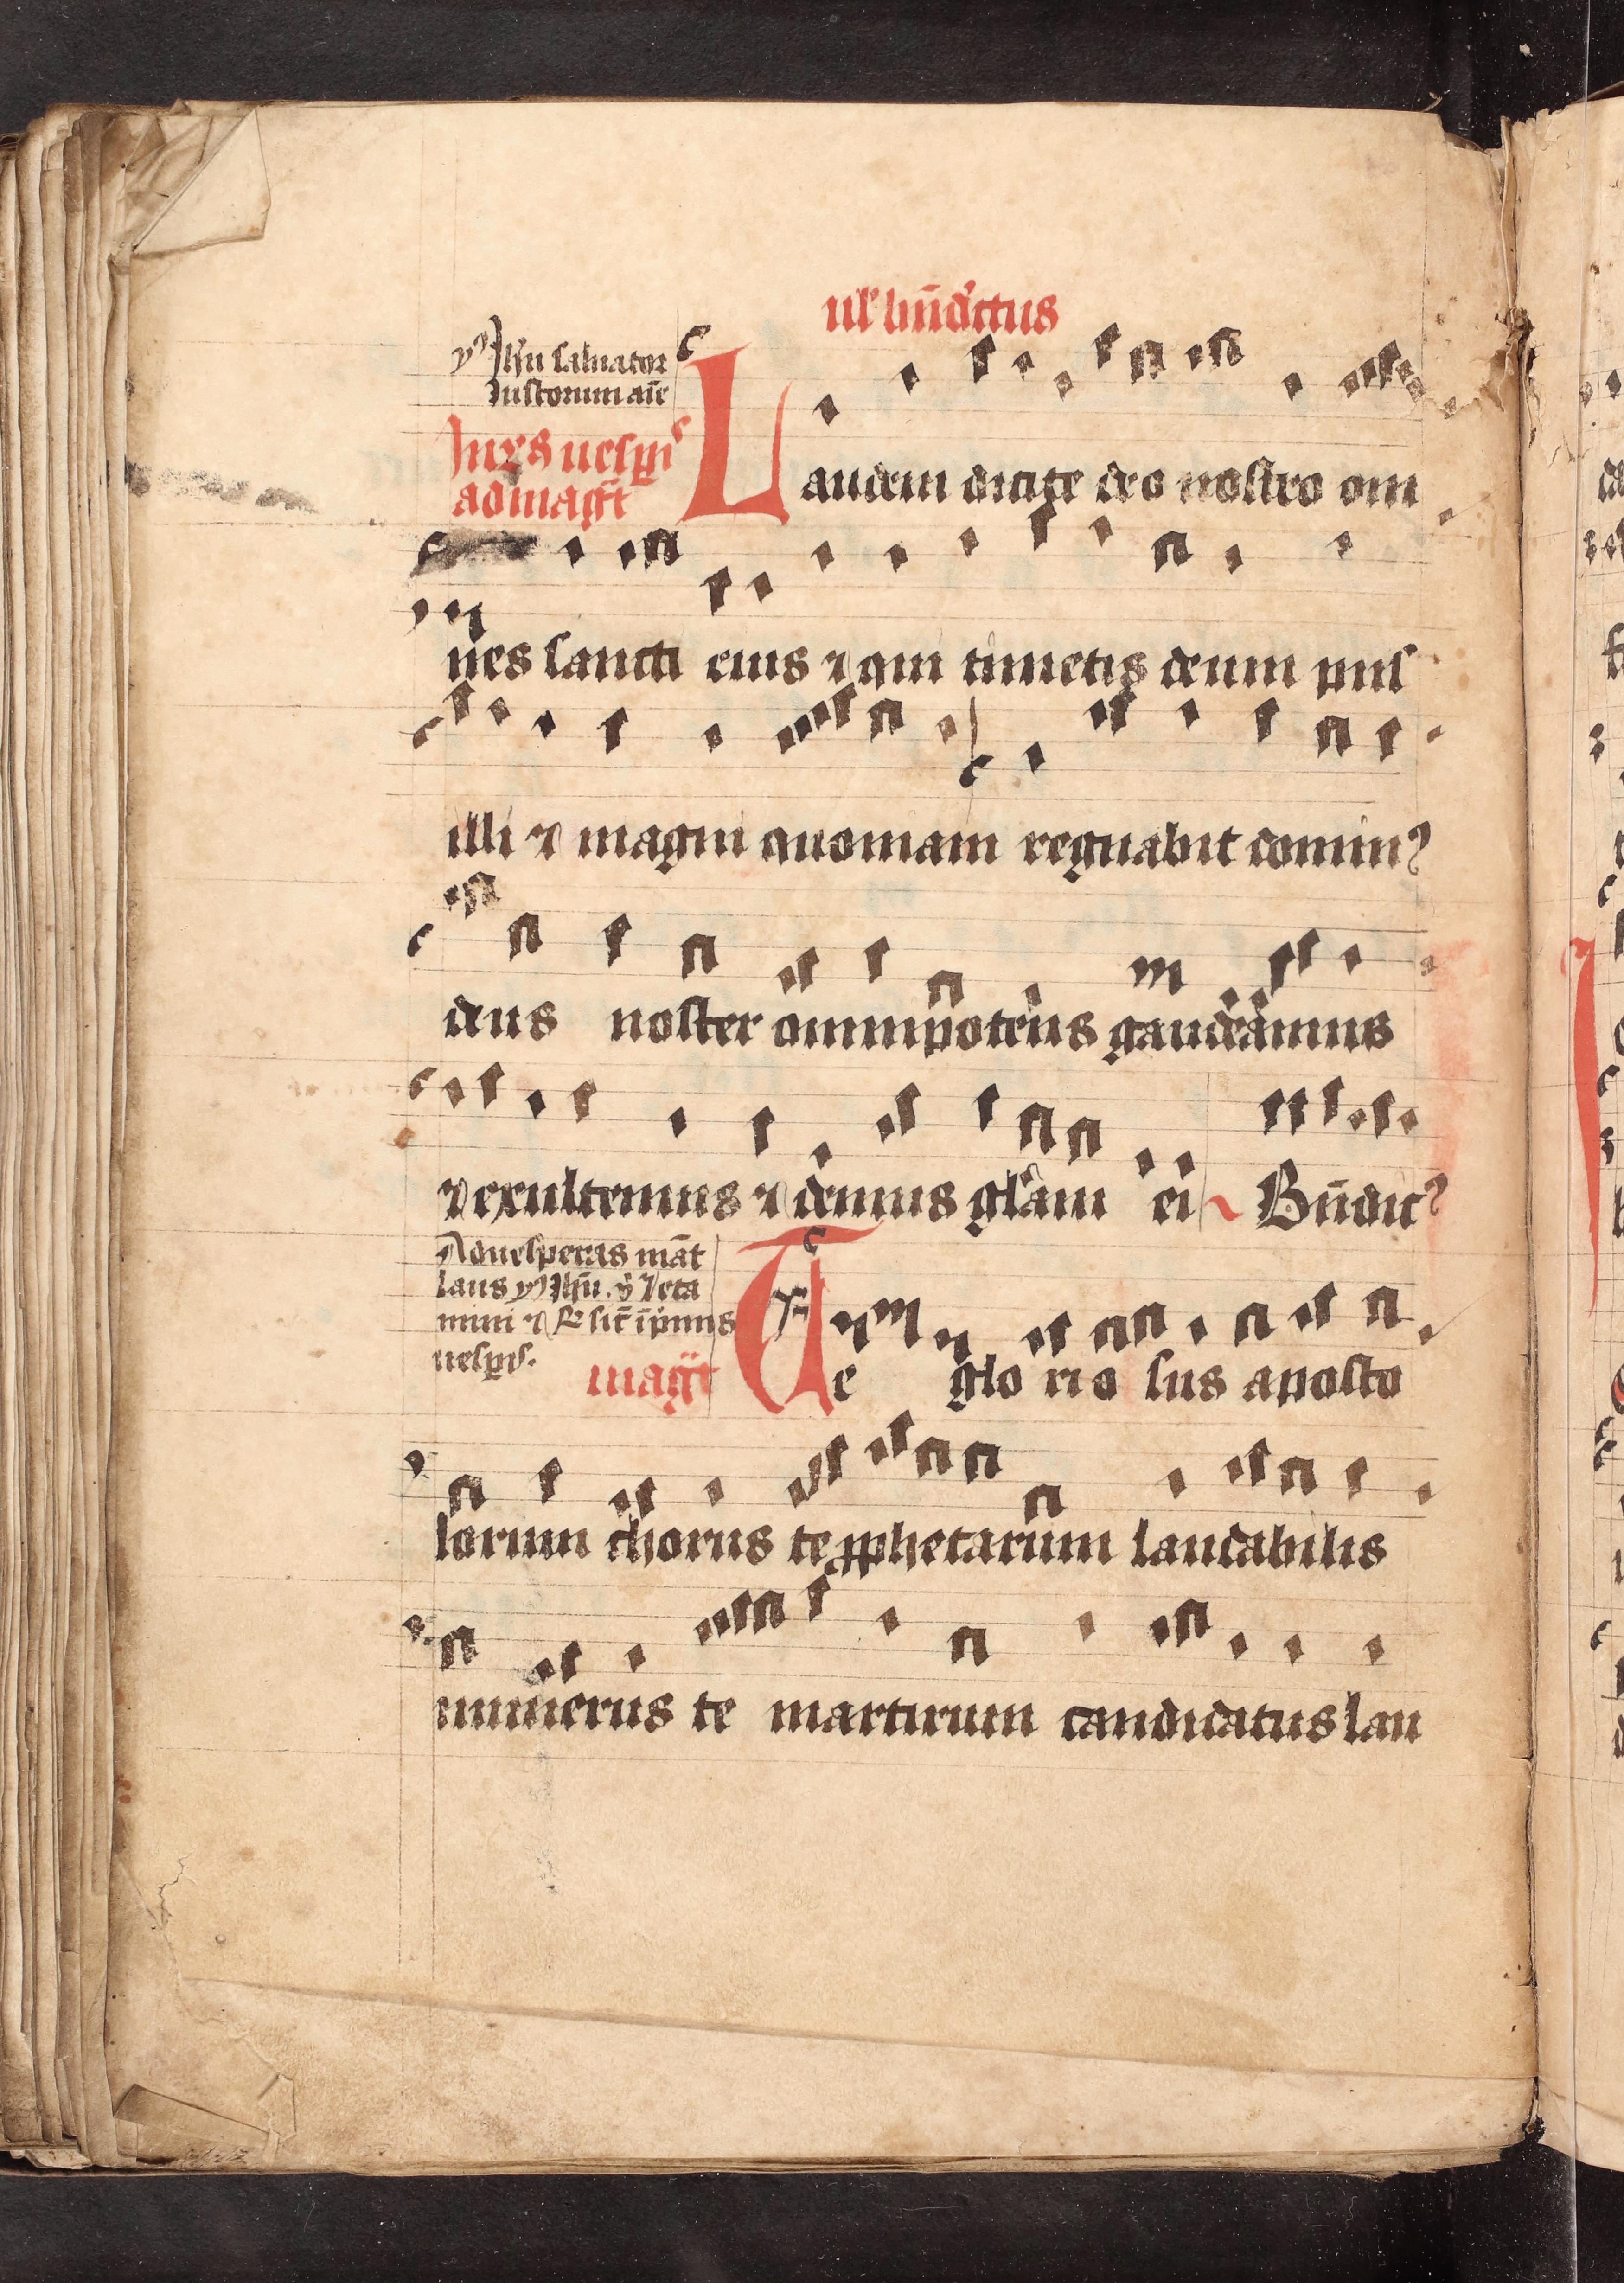 ul' bn̄dictus
yꝰ Jhū saluator
Justorum aīe
Jn ỹs uesp̄is
ad mag̅t
Laudem dicite deo nostro om
nes sancti eius ⁊ qui timetis deum pus
illi ⁊ magni quoniam regnabit dominꝰ
deus noster omnipotens gaudeamus
⁊ exultemus ⁊ demus gl'am ei Bn̄dictꝰ
Ad uesperas māt
laus yꝰ Jhū. ẏ Leta
mini ⁊ sic̄ ī pimis
uesp̄is.
mag̅t
Te glo rio sus aposto
lorum chorus te ꝓphetarum laudabilis
numerus te martirum candidatus lau